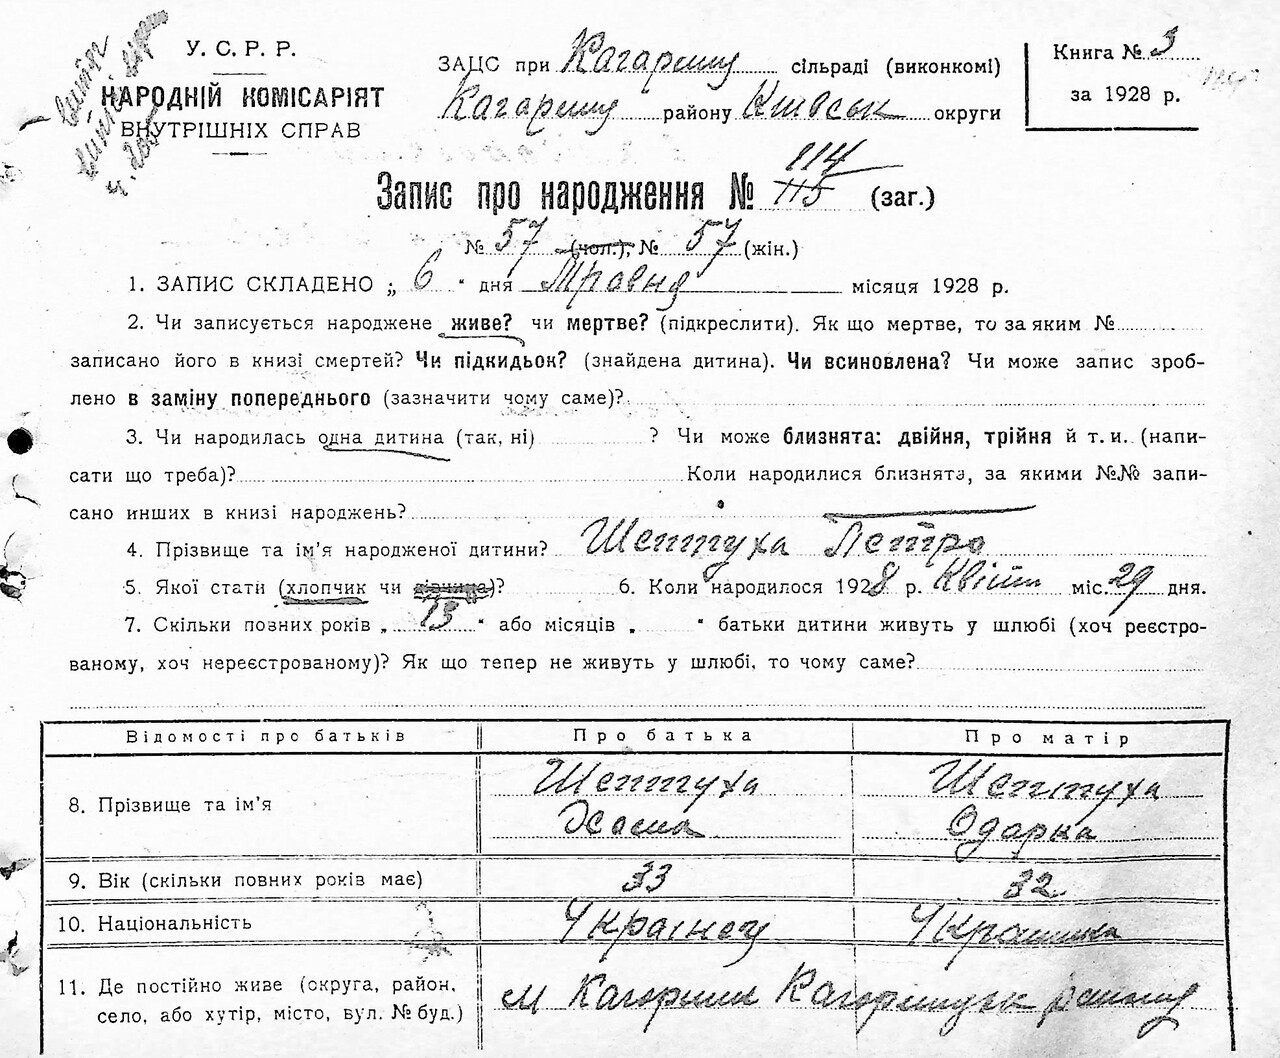 У. С. Р. Р.
НАРОДНІЙ КОМІСАРІЯТ
ВНУТРІШНІХ СПРАВ
ЗАЦС при Кагарлиц сільраді (виконкомі)
Кагарлиц району Київськ округи
Книга № 3
за 1928 р.
Запис про народження № 114 115 (заг.)
№ 57 (чол.), № 57 (жін.)
1. ЗАПИС СКЛАДЕНО „ 6 " дня Травня місяця 1928 р.
2. Чи записується народжене живе? чи мертве? (підкреслити). Як що мертве, то за яким №
записано його в книзі смертей? Чи підкидьок? (знайдена дитина). Чи всиновлена? Чи може запис зроб-
лено в заміну попереднього (зазначити чому саме)?
3. Чи народилась одна дитина (так, ні) ? Чи може близнята: двійня, трійня й т. и. (напи-
сати що треба)? Коли народилися близнята, за якими №№ запи-
сано инших в книзі народжень?
4. Прізвище та ім'я народженої дитини? Шептуха Петро
5. Якої стати (хлопчик чи дівчина)? 6. Коли народилося 1928 р. Квітн міс. 29 дня.
7. Скільки повних років „ 13 " або місяців „ " батьки дитини живуть у шлюбі (хоч реєстро-
ваному, хоч нереєстрованому)? Як що тепер не живуть у шлюбі, то чому саме?
Відомості про батьків Про батька Про матір
8. Прізвище та ім'я Шептуха Шептуха
Одарка
9. Вік (скільки повних років має) 33 32
10. Національність Українец Українка
11. Де постійно живе (округа, район,
село, або хутір, місто, вул. № буд.) м Кагорлик Кагорлицьк району